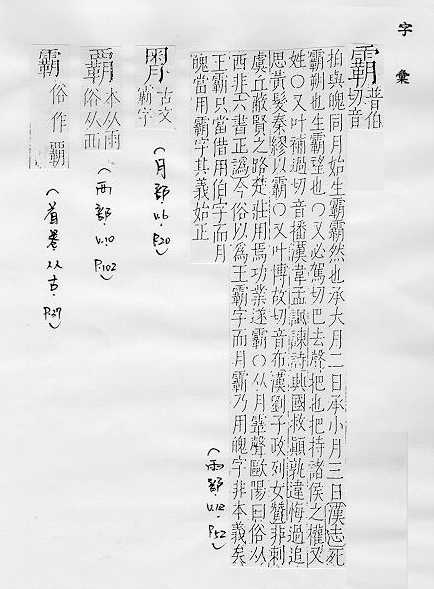 字彙
霸 普伯切音
拍與魄同月始生霸霸然也承大月二日承小月三日漢志死
霸朔也生霸望也○又必駕切巴去聲把也把持諸侯之權又
姓○又叶補過切音播漢韋孟諷諫詩興國救顛孰違悔過追
思黃髮秦繆以霸○又叶博故切音布漢劉子政列女贊非刺
虞丘蔽賢之路楚莊用焉功業遂霸○从月䨣聲歐陽曰俗从
西非六書正譌今俗以為王霸字而月霸乃用魄字非本義矣
王霸只當借用伯字而月
魄當用霸字其義始正
(雨部.V.12 P.52)
古文霸字
(月部 V.6 P.20)
覇 本从雨俗从西
(西部.V.10 P.102)
霸 俗作覇
(首卷从古.P.27)